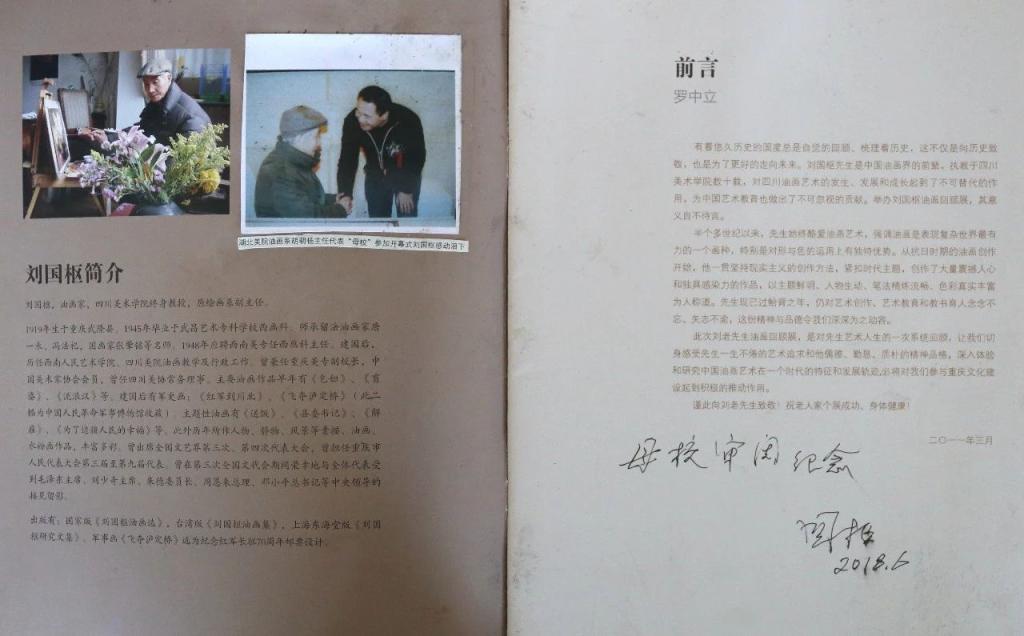 湖北美院油画系胡朝杨主任代表“母校”参加开幕式刘国枢感动泪下
刘国枢简介
刘国枢,油画家,四川美术学院终身教授,原绘画系副主任。
1919年生于重庆武隆县,1945年毕业于武昌艺术专科学校西画科。师承留法油画家唐
一禾、冯法祀,国画家张肇铭等名师。1948年应聘西南美专任西画科主任。建国后,
历任西南人民艺术学院、四川美院油画教学及行政工作。曾兼任重庆美专副校长,中
国美术家协会会员,曾任四川美协常务理事。主要油画作品早年有《乞妇》、《
》、《流浪汉》等。建国后有军史画:《红军到川北》、《飞夺泸定桥》(此二
幅为中国人民革命军事博物馆收藏)。主题性油画有《送饭》、《县委书记》、《解
》、《为了边疆人民的幸福》等。此外历年所作人物、静物、风景等素描、油画、
水粉画作品,丰富多彩。曾出席全国文艺界第三次、第四次代表大会,曾担任重庆市
人民代表大会第三届至第九届代表。曾在第三次全国文代会期间荣幸地与全体代表受
到毛泽东主席、刘少奇主席、朱德委员长、周恩来总理、邓小平总书记等中央领导的
接见留影。
出版有:国家版《刘国枢油画选》,台湾版《刘国枢油画集》,上海东海堂版《刘国
枢研究文集》。军事画《飞夺泸定桥》选为纪念红军长征70周年邮票设计。
前言
罗中立
有着悠久历史的国度总是自觉的回顾、梳理着历史,这不仅是向历史致
敬,也是为了更好的走向未来。刘国枢先生是中国油画界的前辈,执教于四川
美术学院数十载,对四川油画艺术的发生、发展和成长起到了不可替代的作
用,为中国艺术教育也做出了不可忽视的贡献。举办刘国枢油画回顾展,其意
义自不待言。
半个多世纪以来,先生始终酷爱油画艺术,强调油画是表现复杂世界最有
力的一个画种,特别是对形与色的运用上有独特优势。从抗日时期的油画创作
开始,他一贯坚持现实主义的创作方法,紧扣时代主题,创作了大量震撼人心
和独具感染力的作品,以主题鲜明、人物生动、笔法精炼流畅、色彩真实丰富
为人称道。先生现已过鲐背之年,仍对艺术创作、艺术教育和教书育人念念不
忘、矢志不渝,这份精神与品德令我们深深为之动容。
此次刘老先生油画回顾展,是对先生艺术人生的一次系统回顾,让我们切
身感受先生一生不倦的艺术追求和他儒雅、勤恳、质朴的精神品格,深入体验
和研究中国油画艺术在一个时代的特征和发展轨迹,必将对我们参与重庆文化建
设起到积极的推动作用。
谨此向刘老先生致敬!祝老人家个展成功、身体健康!
二〇一一年三月
母校审阅纪念
国枢
2018.6